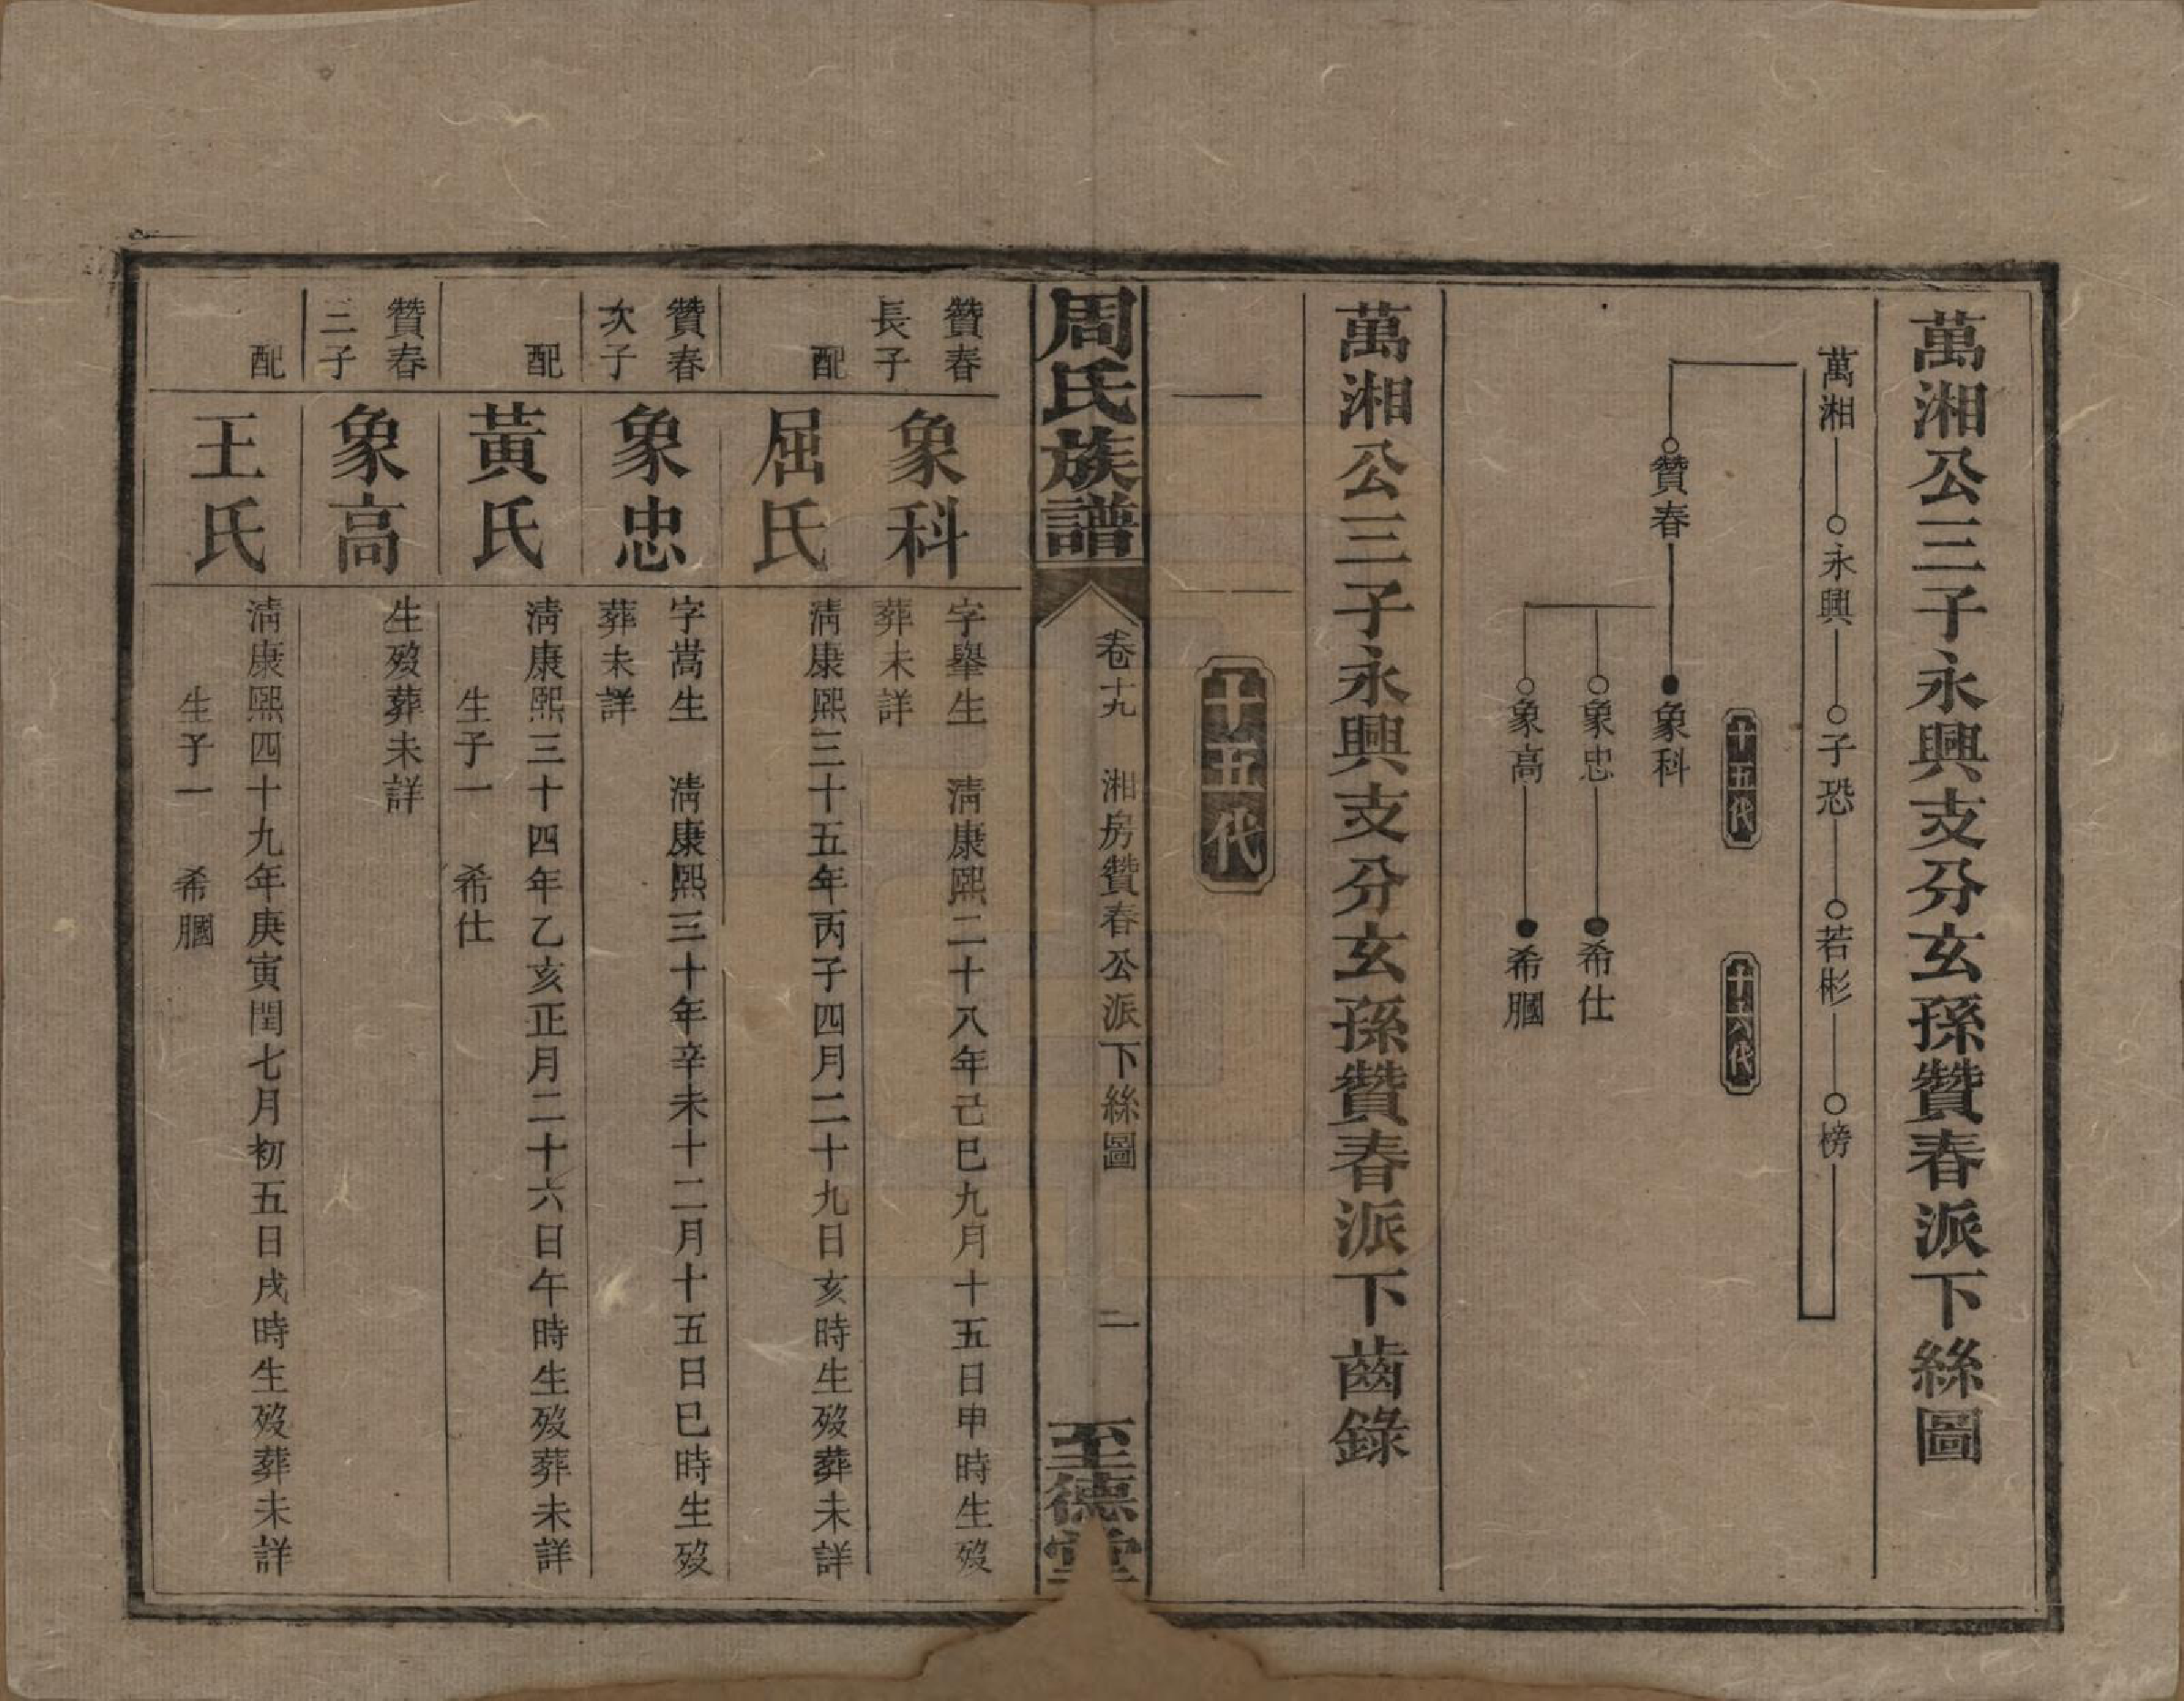 萬湘公三子永興支分玄孫贊春派下絲圖
萬湘 永興 子恐 若彬 榜
十五代 十六代
贊春 象科
象忠 希仕
象高 希膕
萬湘公三子永興支分玄孫贊春派下齒錄
十五代
周氏族譜 卷十九 湘房贊春公派下絲圖 二 至德堂
贊春
長子
象科
字舉生 淸康熙二十八年己巳九月十五日申時生歿
葬未詳
配
屈氏
淸康熙三十五年丙子四月二十九日亥時生歿葬未詳
贊春
次子
象忠
字嵩生 淸康熙三十年辛未十二月十五日巳時生歿
葬未詳
配
黃氏
淸康熙三十四年乙亥正月二十六日午時生歿葬未詳
生子一 希仕
贊春
三子
象高
生歿葬未詳
配
王氏
淸康熙四十九年庚寅閏七月初五日戌時生歿葬未詳
生子一 希膕